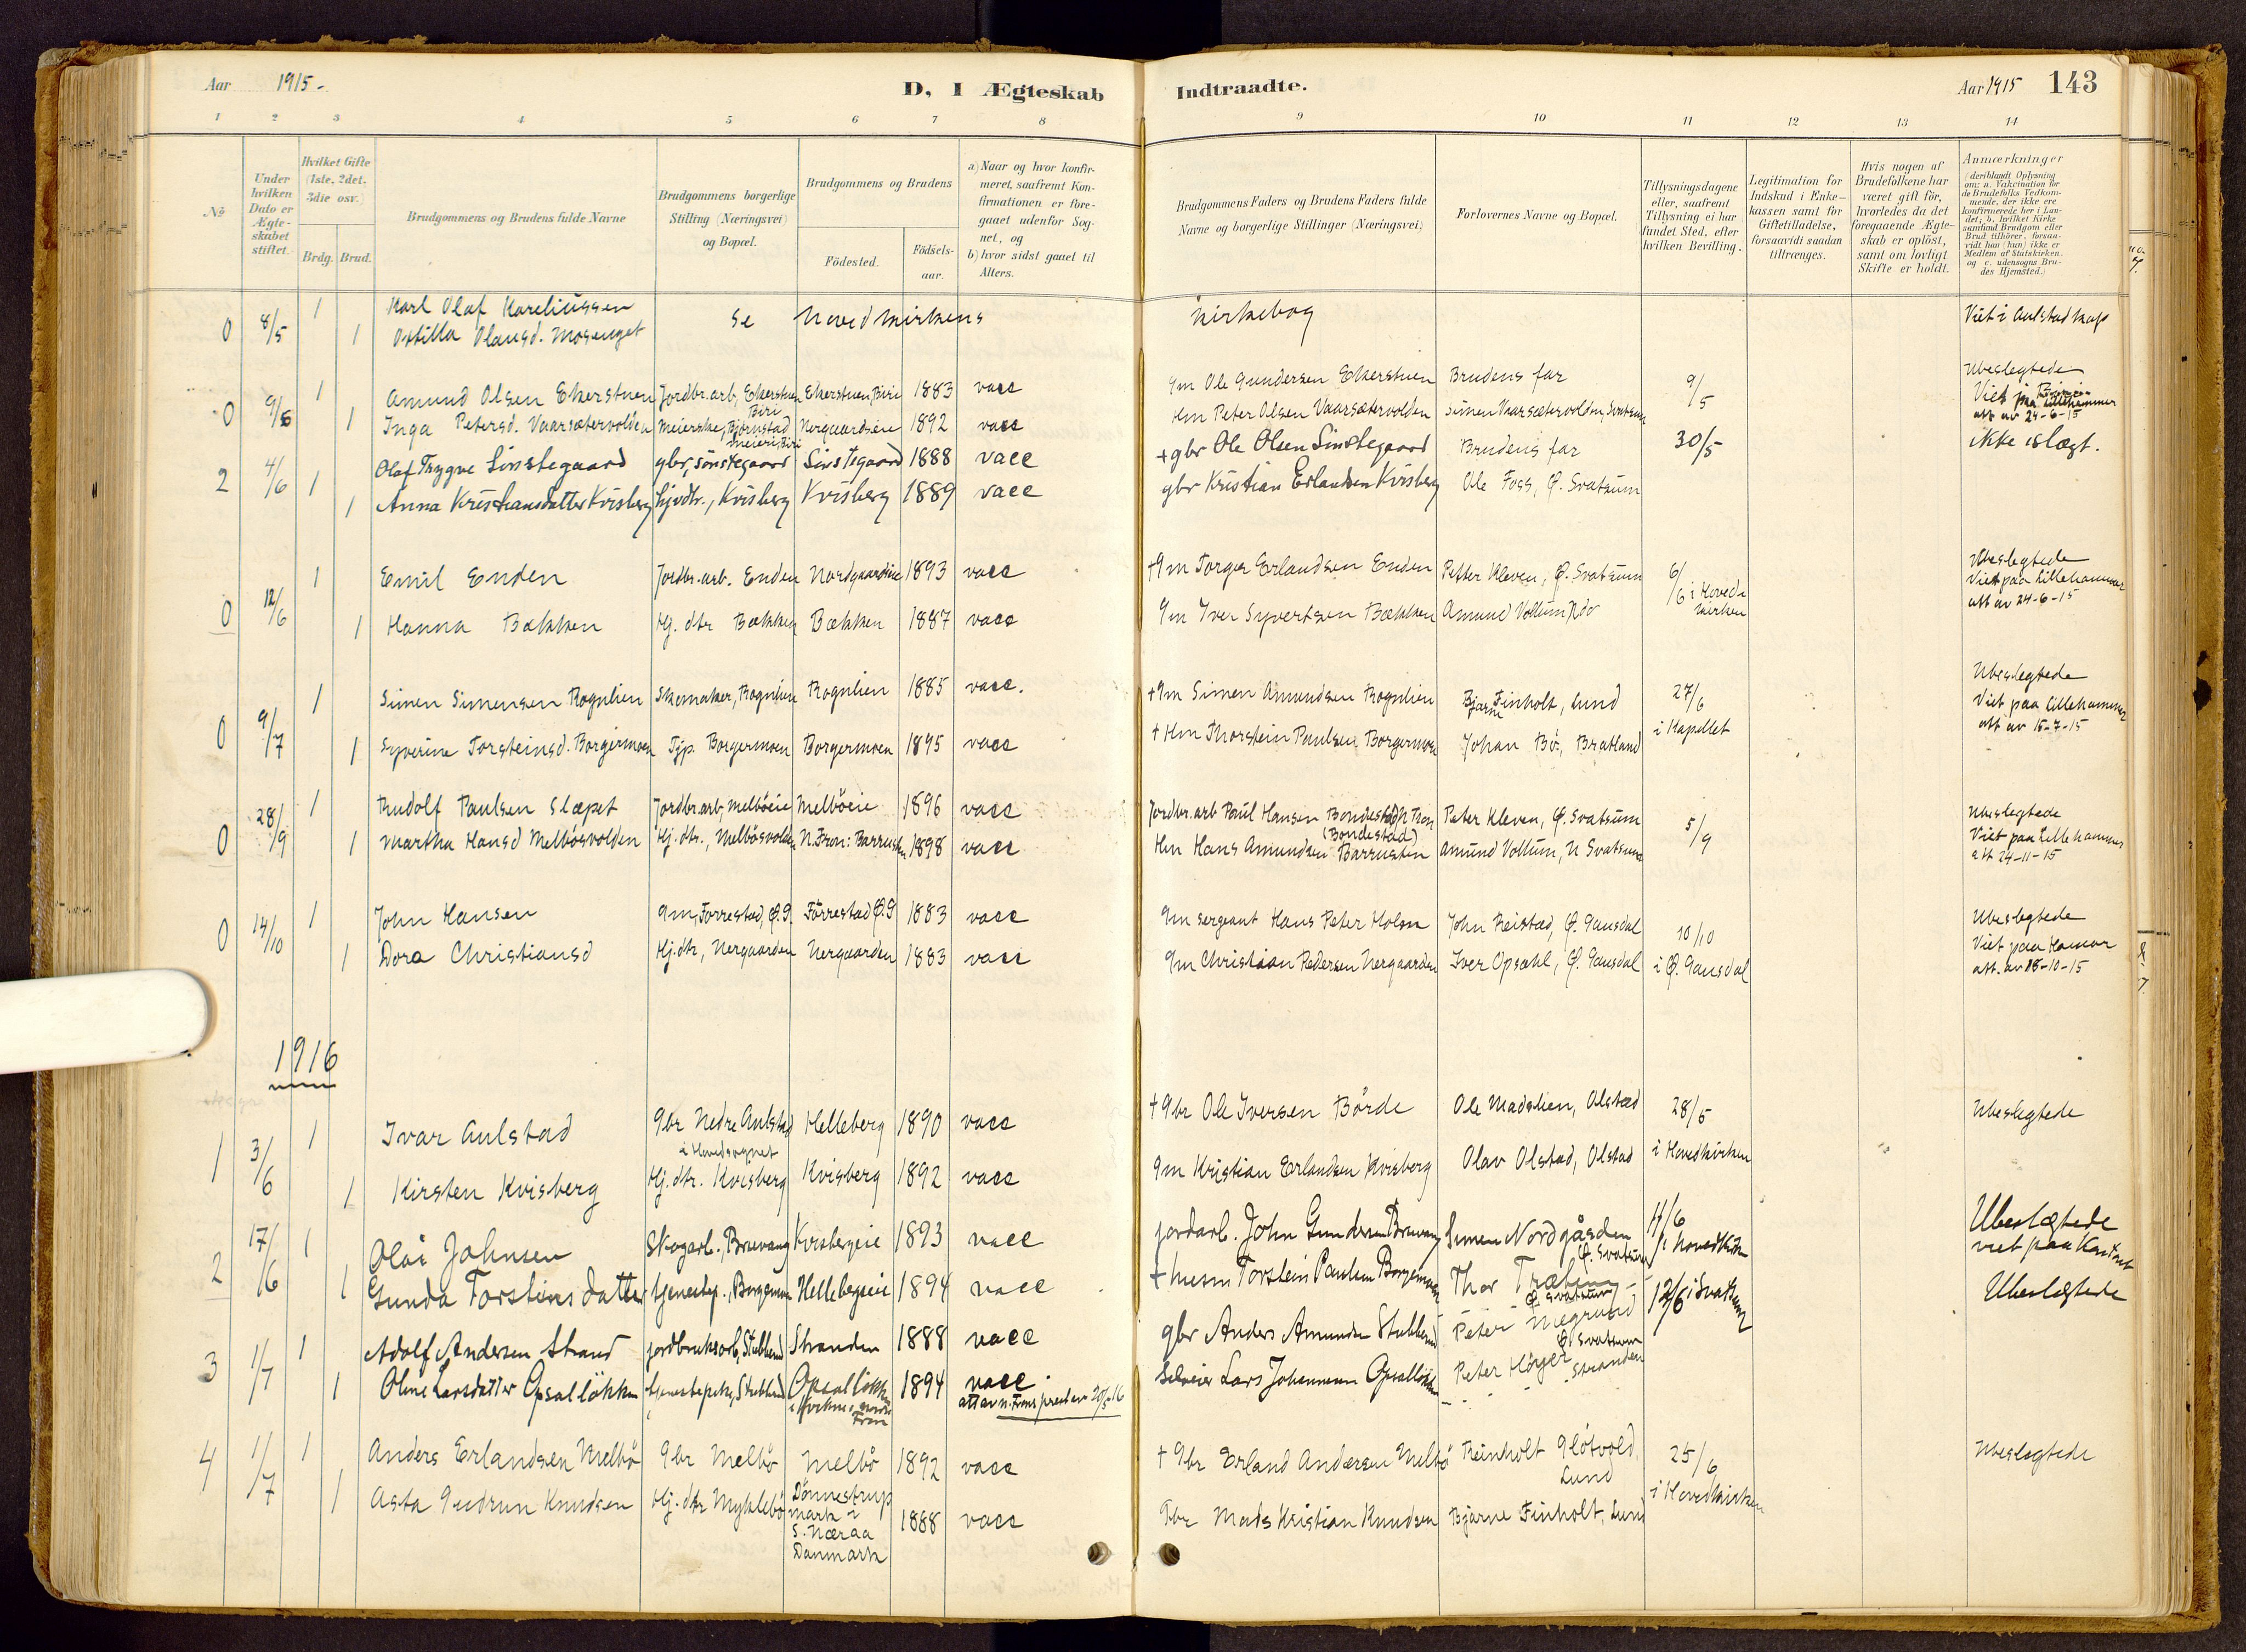 Aar 1915-
D, I Ægteskab Indtraadte.
Aar 1915 143
1 2 3 4 5 6 7 8 9 10 11 12 13 14
No
Under hvilken Dato er Ægteskabet stiftet.
Hvilket Gifte (1ste, 2det, 3die osv.)
Brdg. Brud.
Brudgommens og Brudens fulde Navne
Brudgommens borgerlige Stilling (Næringsvei) og Bopæl.
Brudgommens og Brudens
Födested.
Födsels-aar.
a) Naar og hvor konfirmeret, saafremt Konfirmationen er foregaaet udenfor Sognet, og
b) hvor sidst gaaet til Alters.
Brudgommens Faders og Brudens Faders fulde Navne og borgerlige Stillinger (Næringsvei)
Forlovernes Navne og Bopæl.
Tillysningsdagene eller, saafremt Tillysning ei har fundet Sted, efter hvilken Bevilling.
Legitimation for Indskud i Enkekassen samt for Giftetilladelse, forsaavidt saadan tiltrænges.
Hvis nogen af Brudefolkene har været gift för, hvorledes da det foregaaende Ægteskab er oplöst, samt om lovligt Skifte er holdt.
Anmærkninger (deriblandt Oplysning om: a. Vakcination for de Brudefolks Vedkommende, der ikke ere konfirmerede her i Landet; b. hvilket Kirkesamfund Brudgom eller Brud tilhörer, forsaavidt han (hun) ikke er Medlem af Statskirken, og c. udensogns Brudes Hjemsted.)
0 8/5 1 Karl Olaf Kareliussen se Hovedkirkens kirkebog Viet i Aulstad kap
1 Ottilla Olausd. Mosenget
0 9/6 1 Amund Olsen Ekerstuen Jordbr.arb, Ekerstuen Biri Ekerstuen, Biri 1883 vacc Gm Ole Gundersen Ekerstuen Brudens far 9/5 Ubeslegtede
1 Inga Petersd. Vaarsætervolden Meierske, Björnstad Meieri, Biri Nergaardseie 1892 vacc Hm Peter Olsen Vaarsætervolden Simen Vaarsætervolden, Svatsum Viet paa Lillehammer
att av 24-6-15
2 4/6 1 Olaf Trygve Sinstegaard gbr, Sinstegaard Sinstegaard 1888 vacc + gbr Ole Olsen Sinstegaard Brudens far 30/5 ikke i slegt.
1 Anna Kristiansdatter Kvisberg hjvdtr., Kvisberg Kvisberg 1889 vacc gbr Kristian Erlandsen Kvisberg Ole Foss, Ø. Svatsum
0 12/6 1 Emil Enden Jordbr.arb. Enden Nordgaardseie 1893 vacc + Gm Torger Erlandsen Enden Petter Kleven, Ø. Svatsum 6/6 i Hovedkirken Ubeslegtede
Viet paa Lillehammer
att av 24-6-15
1 Hanna Bækken Hj. dtr Bækken Bækken 1887 vacc Gm Iver Syvertsen Bækken Amund Vollum, do
0 9/7 1 Simen Simensen Rognlien Skomaker, Rognlien Rognlien 1885 vacc. + Gm Simen Amundsen Rognlien Bjarne Finholt, Lund 27/6 i Kapellet Ubeslegtede
Viet paa Lillehammer
att av 15-7-15
1 Syverine Torsteinsd. Borgermoen Tjp. Borgermoen Borgermoen 1895 vacc + Hm Thorstein Paulsen Borgermoen Johan Bö, Bratland
0 28/9 1 Rudolf Paulsen Slæpet Jordbr.arb, Melböeie Melböeie 1896 vacc Jordbr.arb Paul Hansen Bondestad, N Fron (Bondestad) Peter Kleven, Ø. Svatsum 5/9 Ubeslegtede
Viet paa Lillehammer
att 24-11-15
1 Martha Hansd Melbösvolden Hj. dtr., Melbösvolden N. Fron: Barrusten 1898 vacc Hm Hans Amundsen Barrusten Amund Vollum, N Svatsum
0 14/10 1 John Hansen Gm, Forrestad, Ø.G. Förrestad Ø.G 1883 vacc Gm sergeant Hans Peter Holm John Reistad, Ø. Gausdal 10/10 i Ø. Gausdal Ubeslegtede
Viet paa Hamar
att. av 18-10-15
1 Dora Christiansd Hj. dtr, Nergaarden Nergaarden 1883 vacc Gm Christian Pedersen Nergaarden Iver Opsahl, Ø. Gausdal
1916
1 3/6 1 Ivar Aulstad Gbr Nedre Aulstad i Hovedsognet Helleberg 1890 vacc + Gbr Ole Iversen Börde Ole Madslien, Olstad 28/5 i Hovedkirken Ubeslegtede
1 Kirsten Kvisberg Hj. dtr. Kvisberg Kvisberg 1892 vacc Gm Kristian Erlandsen Kvisberg Olav Olstad, Olstad
2 17/6 1 Olai Johnsen Skogarb., Bruvang Kvisbergeie 1893 vacc jordarb. John Gundersen Bruvang Simen Nordgården Ø. Svatsum 11/6 i hovedkirken Ubeslegtede
viet paa Kontoret
1 Gunda Torstinsdatter tjenestep., Borgermoen Hellebergseie 1894 vacc + husm Torstein Paulsen Borgermoen Thor Ø Svatsum
3 1/7 1 Adolf Andersen Strand jordbruksarb, Stubbend Stranden 1888 vacc gbr Anders Amundsen Stubbend Peter Megrund Ø. Svatsum 12/6 i Svatsum Ubeslegtede
1 Oline Larsdatter Opsallökken tjenestepike, Stubbend Opsallökken i nordre Fron 1894 vacc. att av n. Frons prest av 20/5-16 Selveier Lars Johannesen Opsallökken Peter Höyer Stranden
4 1/7 1 Anders Erlandsen Melbö Gbr Melbö Melbö 1892 vacc + Gbr Erland Andersen Melbö Reinholt Glötvold, Lund 25/6 i Hovedkirken Ubeslegtede
1 Asta Gudrun Knudsen Hj. dtr Myklebö Dönnestrup mark i S. Næraa Danmark 1888 vacc Gbr Mads Kristian Knudsen Bjarne Finholt, Lund